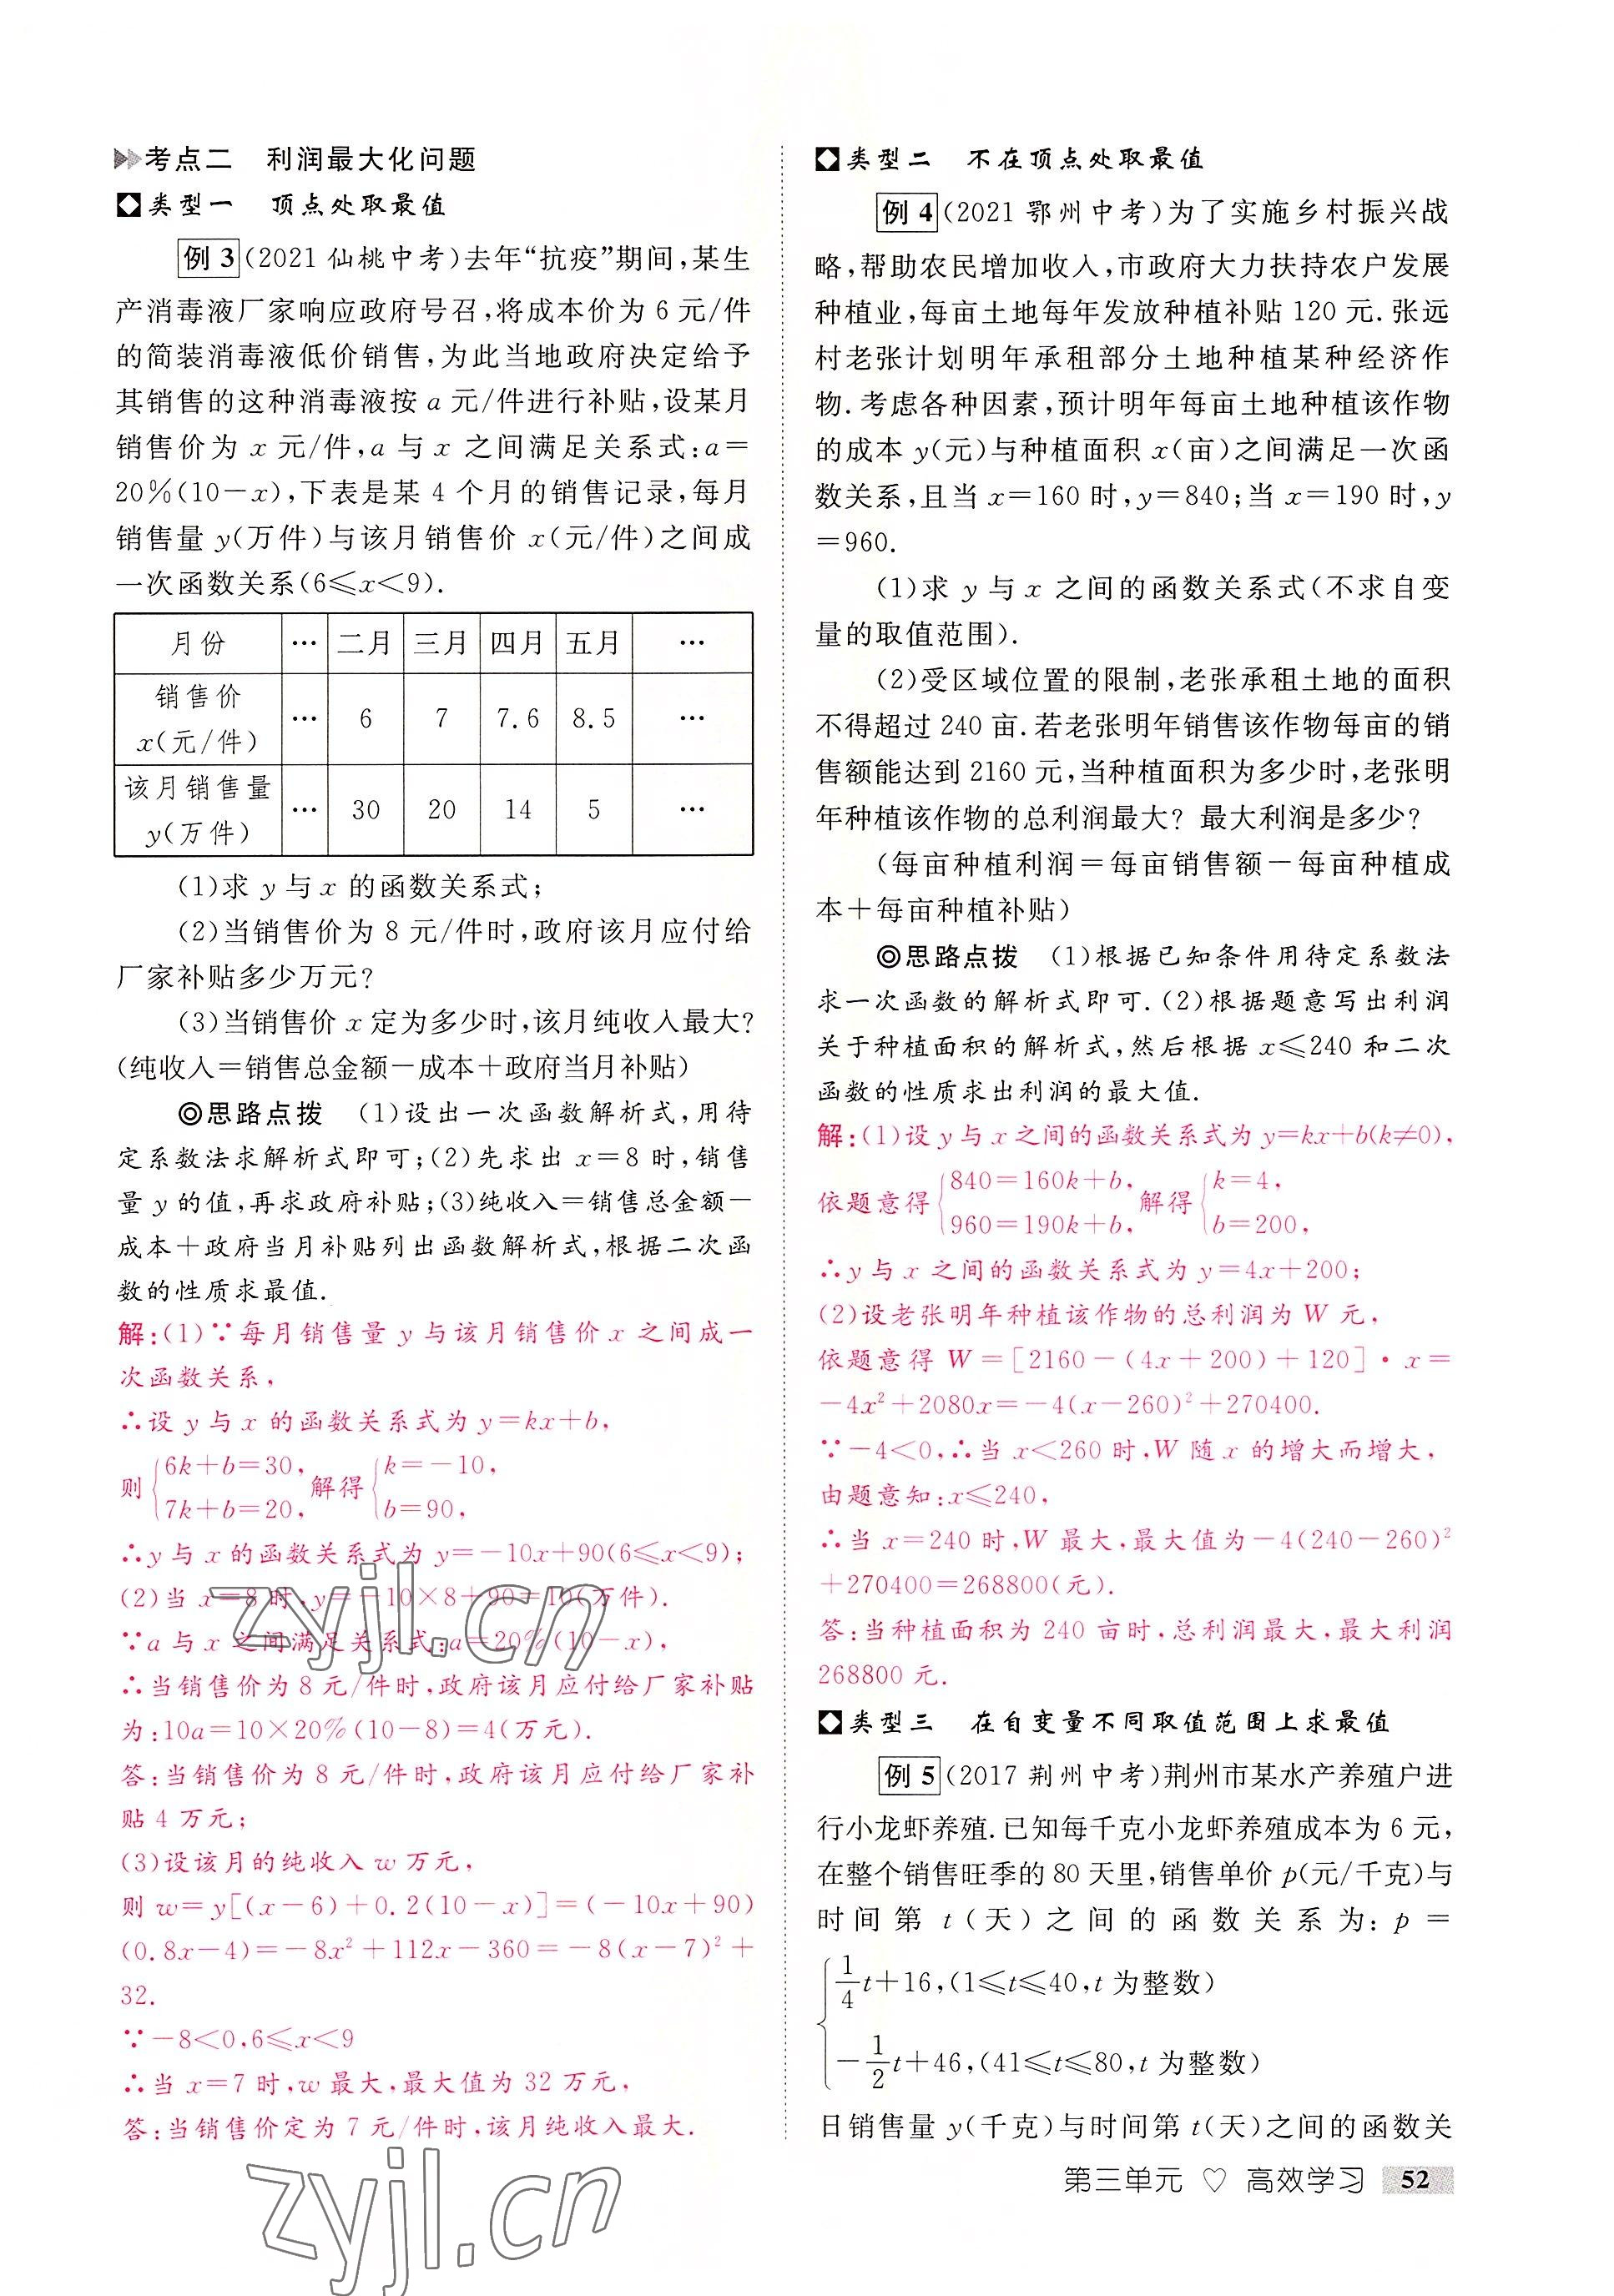 考点二 利润最大化问题
类型一 顶点处取最值
例 3 (2021 仙桃中考)去年“抗疫”期间,某生
产消毒液厂家响应政府号召,将成本价为 6 元/件
的简装消毒液低价销售,为此当地政府决定给予
其销售的这种消毒液按 a 元/件进行补贴,设某月
销售价为 x 元/件,a 与 x 之间满足关系式:a=
20%(10-x),下表是某 4 个月的销售记录,每月
销售量 y(万件)与该月销售价 x(元/件)之间成
一次函数关系(6≤x<9).
月份 … 二月 三月 四月 五月 …
销售价
x(元/件) … 6 7 7.6 8.5 …
该月销售量
y(万件) … 30 20 14 5 …
(1)求 y 与 x 的函数关系式;
(2)当销售价为 8 元/件时,政府该月应付给
厂家补贴多少万元?
(3)当销售价 x 定为多少时,该月纯收入最大?
(纯收入=销售总金额-成本+政府当月补贴)
◎思路点拨 (1)设出一次函数解析式,用待
定系数法求解析式即可;(2)先求出 x=8 时,销售
量 y 的值,再求政府补贴;(3)纯收入=销售总金额-
成本+政府当月补贴列出函数解析式,根据二次函
数的性质求最值.
解:(1)∵每月销售量 y 与该月销售价 x 之间成一
次函数关系,
∴设 y 与 x 的函数关系式为 y=kx+b,
则 {6k+b=30, 7k+b=20, 解得 {k=-10, b=90,
∴y 与 x 的函数关系式为 y=-10x+90(6≤x<9);
(2)当 x=8 时,y=-10×8+90=10(万件).
∵a 与 x 之间满足关系式:a=20%(10-x),
∴当销售价为 8 元/件时,政府该月应付给厂家补贴
为:10a=10×20%(10-8)=4(万元).
答:当销售价为 8 元/件时,政府该月应付给厂家补
贴 4 万元;
(3)设该月的纯收入 w 万元,
则 w=y[(x-6)+0.2(10-x)]=(-10x+90)
(0.8x-4)=-8x²+112x-360=-8(x-7)²+
32.
∵-8<0,6≤x<9
∴当 x=7 时,w 最大,最大值为 32 万元,
答:当销售价定为 7 元/件时,该月纯收入最大.
类型二 不在顶点处取最值
例 4 (2021 鄂州中考)为了实施乡村振兴战
略,帮助农民增加收入,市政府大力扶持农户发展
种植业,每亩土地每年发放种植补贴 120 元.张远
村老张计划明年承租部分土地种植某种经济作
物.考虑各种因素,预计明年每亩土地种植该作物
的成本 y(元)与种植面积 x(亩)之间满足一次函
数关系,且当 x=160 时,y=840;当 x=190 时,y
=960.
(1)求 y 与 x 之间的函数关系式(不求自变
量的取值范围).
(2)受区域位置的限制,老张承租土地的面积
不得超过 240 亩.若老张明年销售该作物每亩的销
售额能达到 2160 元,当种植面积为多少时,老张明
年种植该作物的总利润最大?最大利润是多少?
(每亩种植利润=每亩销售额-每亩种植成
本+每亩种植补贴)
◎思路点拨 (1)根据已知条件用待定系数法
求一次函数的解析式即可.(2)根据题意写出利润
关于种植面积的解析式,然后根据 x≤240 和二次
函数的性质求出利润的最大值.
解:(1)设 y 与 x 之间的函数关系式为 y=kx+b(k≠0),
依题意得 {840=160k+b, 960=190k+b, 解得 {k=4, b=200,
∴y 与 x 之间的函数关系式为 y=4x+200;
(2)设老张明年种植该作物的总利润为 W 元,
依题意得 W=[2160-(4x+200)+120]·x=
-4x²+2080x=-4(x-260)²+270400.
∵-4<0,∴当 x<260 时,W 随 x 的增大而增大,
由题意知:x≤240,
∴当 x=240 时,W 最大,最大值为-4(240-260)²
+270400=268800(元).
答:当种植面积为 240 亩时,总利润最大,最大利润
268800 元.
类型三 在自变量不同取值范围上求最值
例 5 (2017 荆州中考)荆州市某水产养殖户进
行小龙虾养殖.已知每千克小龙虾养殖成本为 6 元,
在整个销售旺季的 80 天里,销售单价 p(元/千克)与
时间第 t(天)之间的函数关系为:p=
{1/4 t+16,(1≤t≤40,t 为整数)
-1/2 t+46,(41≤t≤80,t 为整数)
日销售量 y(千克)与时间第 t(天)之间的函数关
第三单元 ♡ 高效学习 52
zyjl.cn
zyjl.cn